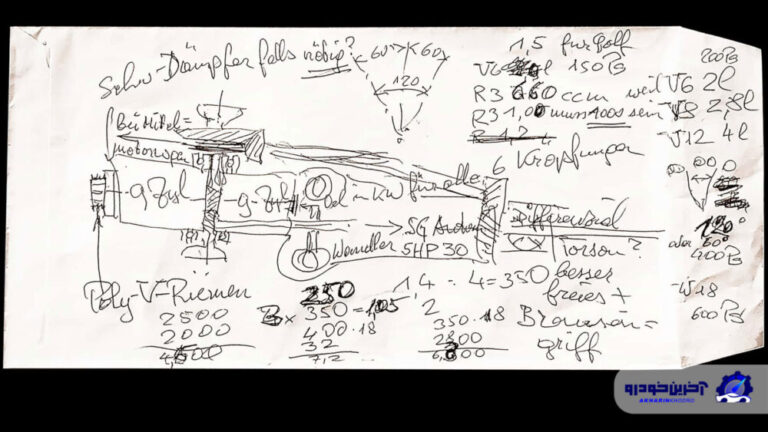 Schw-Dämpfer falls nötig?
60° 60°
120
1,5 für Golf
V6 150 PS
R3 ccm weil
R3 1,00 muss 1000 sein
R 1,2
200 PS
V6 2l
V8 2,8l
V12 4l
bei Mittel=
motorwagen
6 Kröpfungen
9 Zyl
9-Zyl
Öl in KW für alle
SG
Wandler 5HP30
Differenzial
Torson?
120°
oder 60°
400 PS
W18
600 PS
Poly-V-Riemen
2500
2000
250
3 x 350 = 1,05
400 · 18
32
7,2
1,4 : 4 = 350 besser
freies +
350 · 18
2800
6,300
griff
آخرین خودرو
AKHARINKHODRO